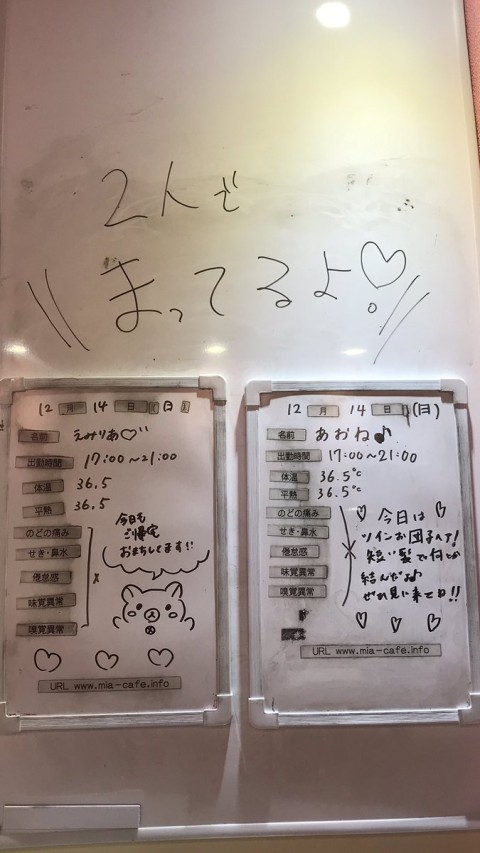 2人で
まってるよ♡
12月14日(日)
名前 えみりあ♡
出勤時間 17:00~21:00
体温 36.5
平熱 36.5
のどの痛み
せき・鼻水
倦怠感
味覚異常
嗅覚異常
×
今日も
ご帰宅
おまちしてます!!
URL www.mia-cafe.info
12月14日(日)
名前 あおね♪
出勤時間 17:00~21:00
体温 36.5℃
平熱 36.5℃
のどの痛み
せき・鼻水
倦怠感
味覚異常
嗅覚異常
×
♡今日は♡
ツインお団子ヘア!
短い髪で何とか
結んだよ♪
ぜひ見に来てね!!
URL www.mia-cafe.info